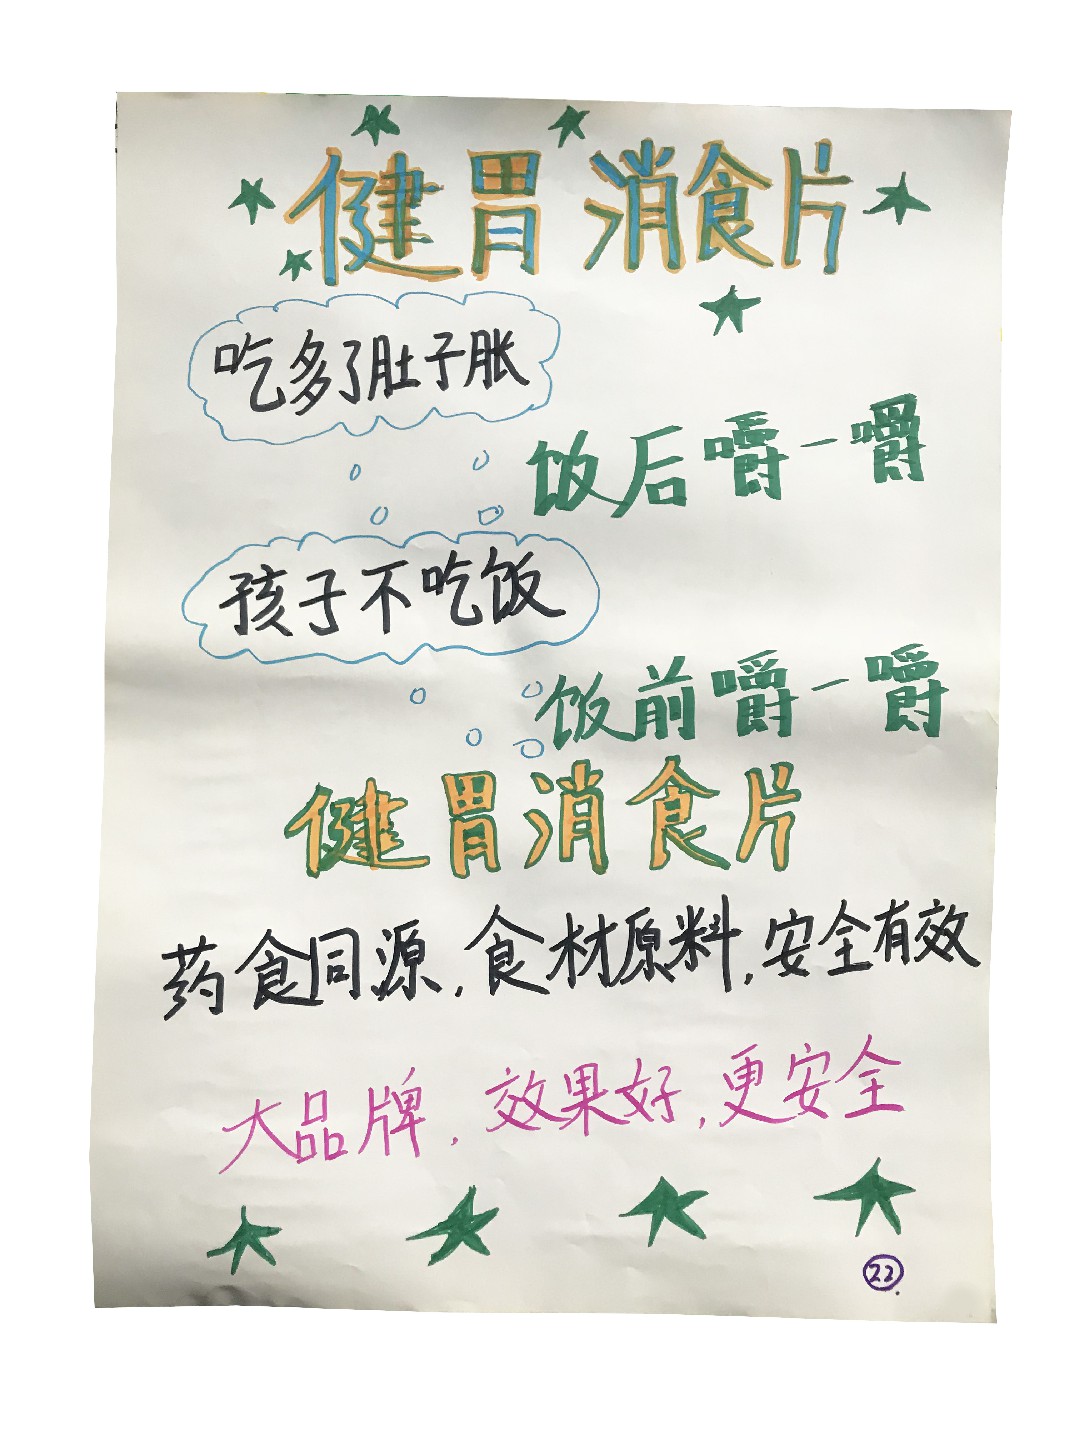 健胃消食片
吃多了肚子胀
饭后嚼一嚼
孩子不吃饭
饭前嚼一嚼
健胃消食片
药食同源,食材原料,安全有效
大品牌,效果好,更安全
22